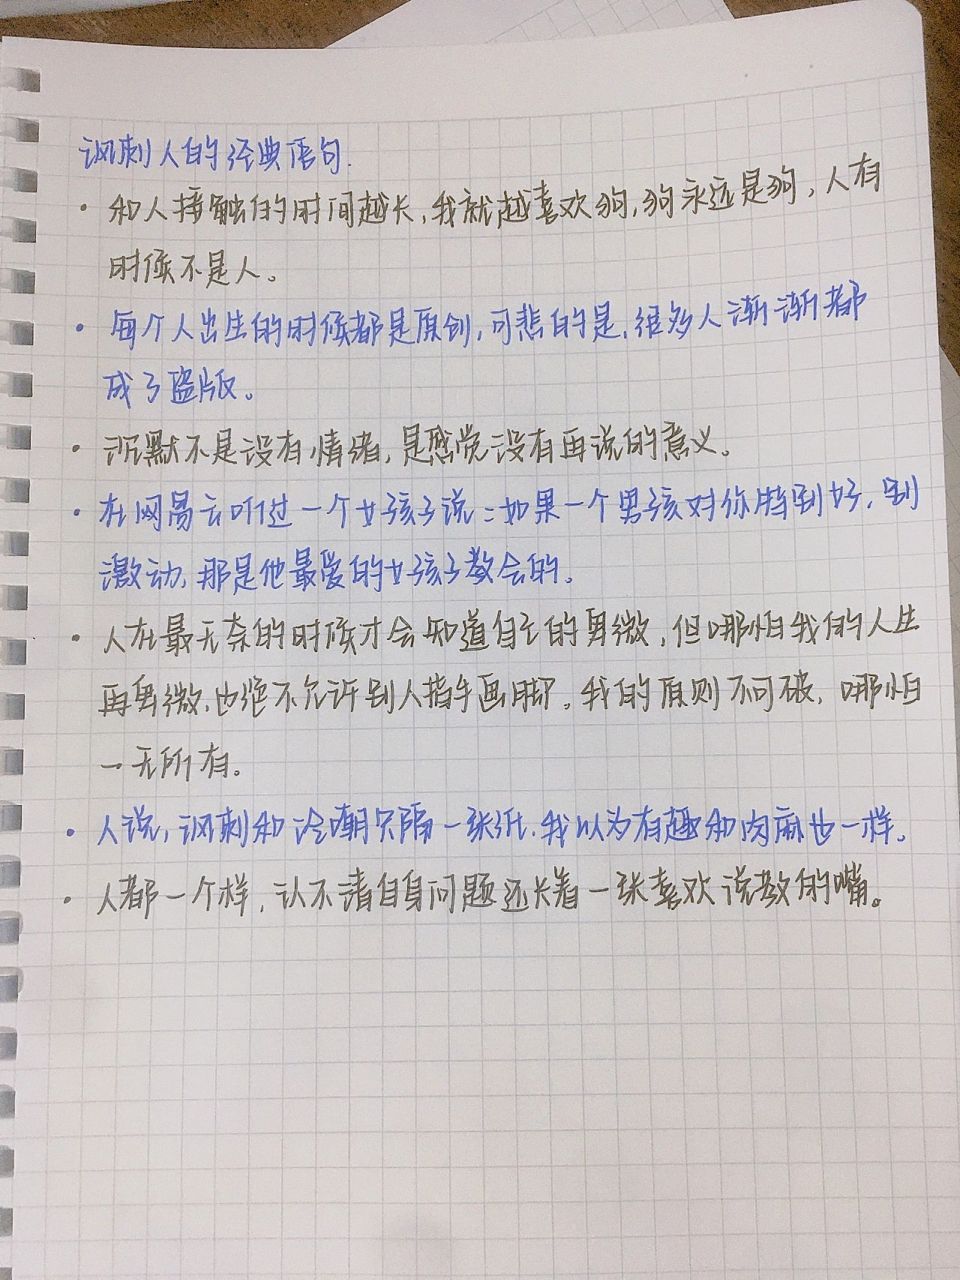 讽刺人的经典语句.
· 和人接触的时间越长,我就越喜欢狗,狗永远是狗,人有
时候不是人。
· 每个人出生的时候都是原创,可悲的是,很多人渐渐都
成了盗版。
· 沉默不是没有情绪,是感觉没有再说的意义。
· 在网易云听过一个女孩子说:如果一个男孩对你特别好,别
激动,那是他最爱的女孩子教会的。
· 人在最无奈的时候才会知道自己的卑微,但哪怕我的人生
再卑微,也绝不允许别人指手画脚。我的原则不可破,哪怕
一无所有。
· 人说,讽刺和冷嘲只隔一张纸,我以为有趣和肉麻也一样。
· 人都一个样,认不清自身问题还长着一张喜欢说教的嘴。